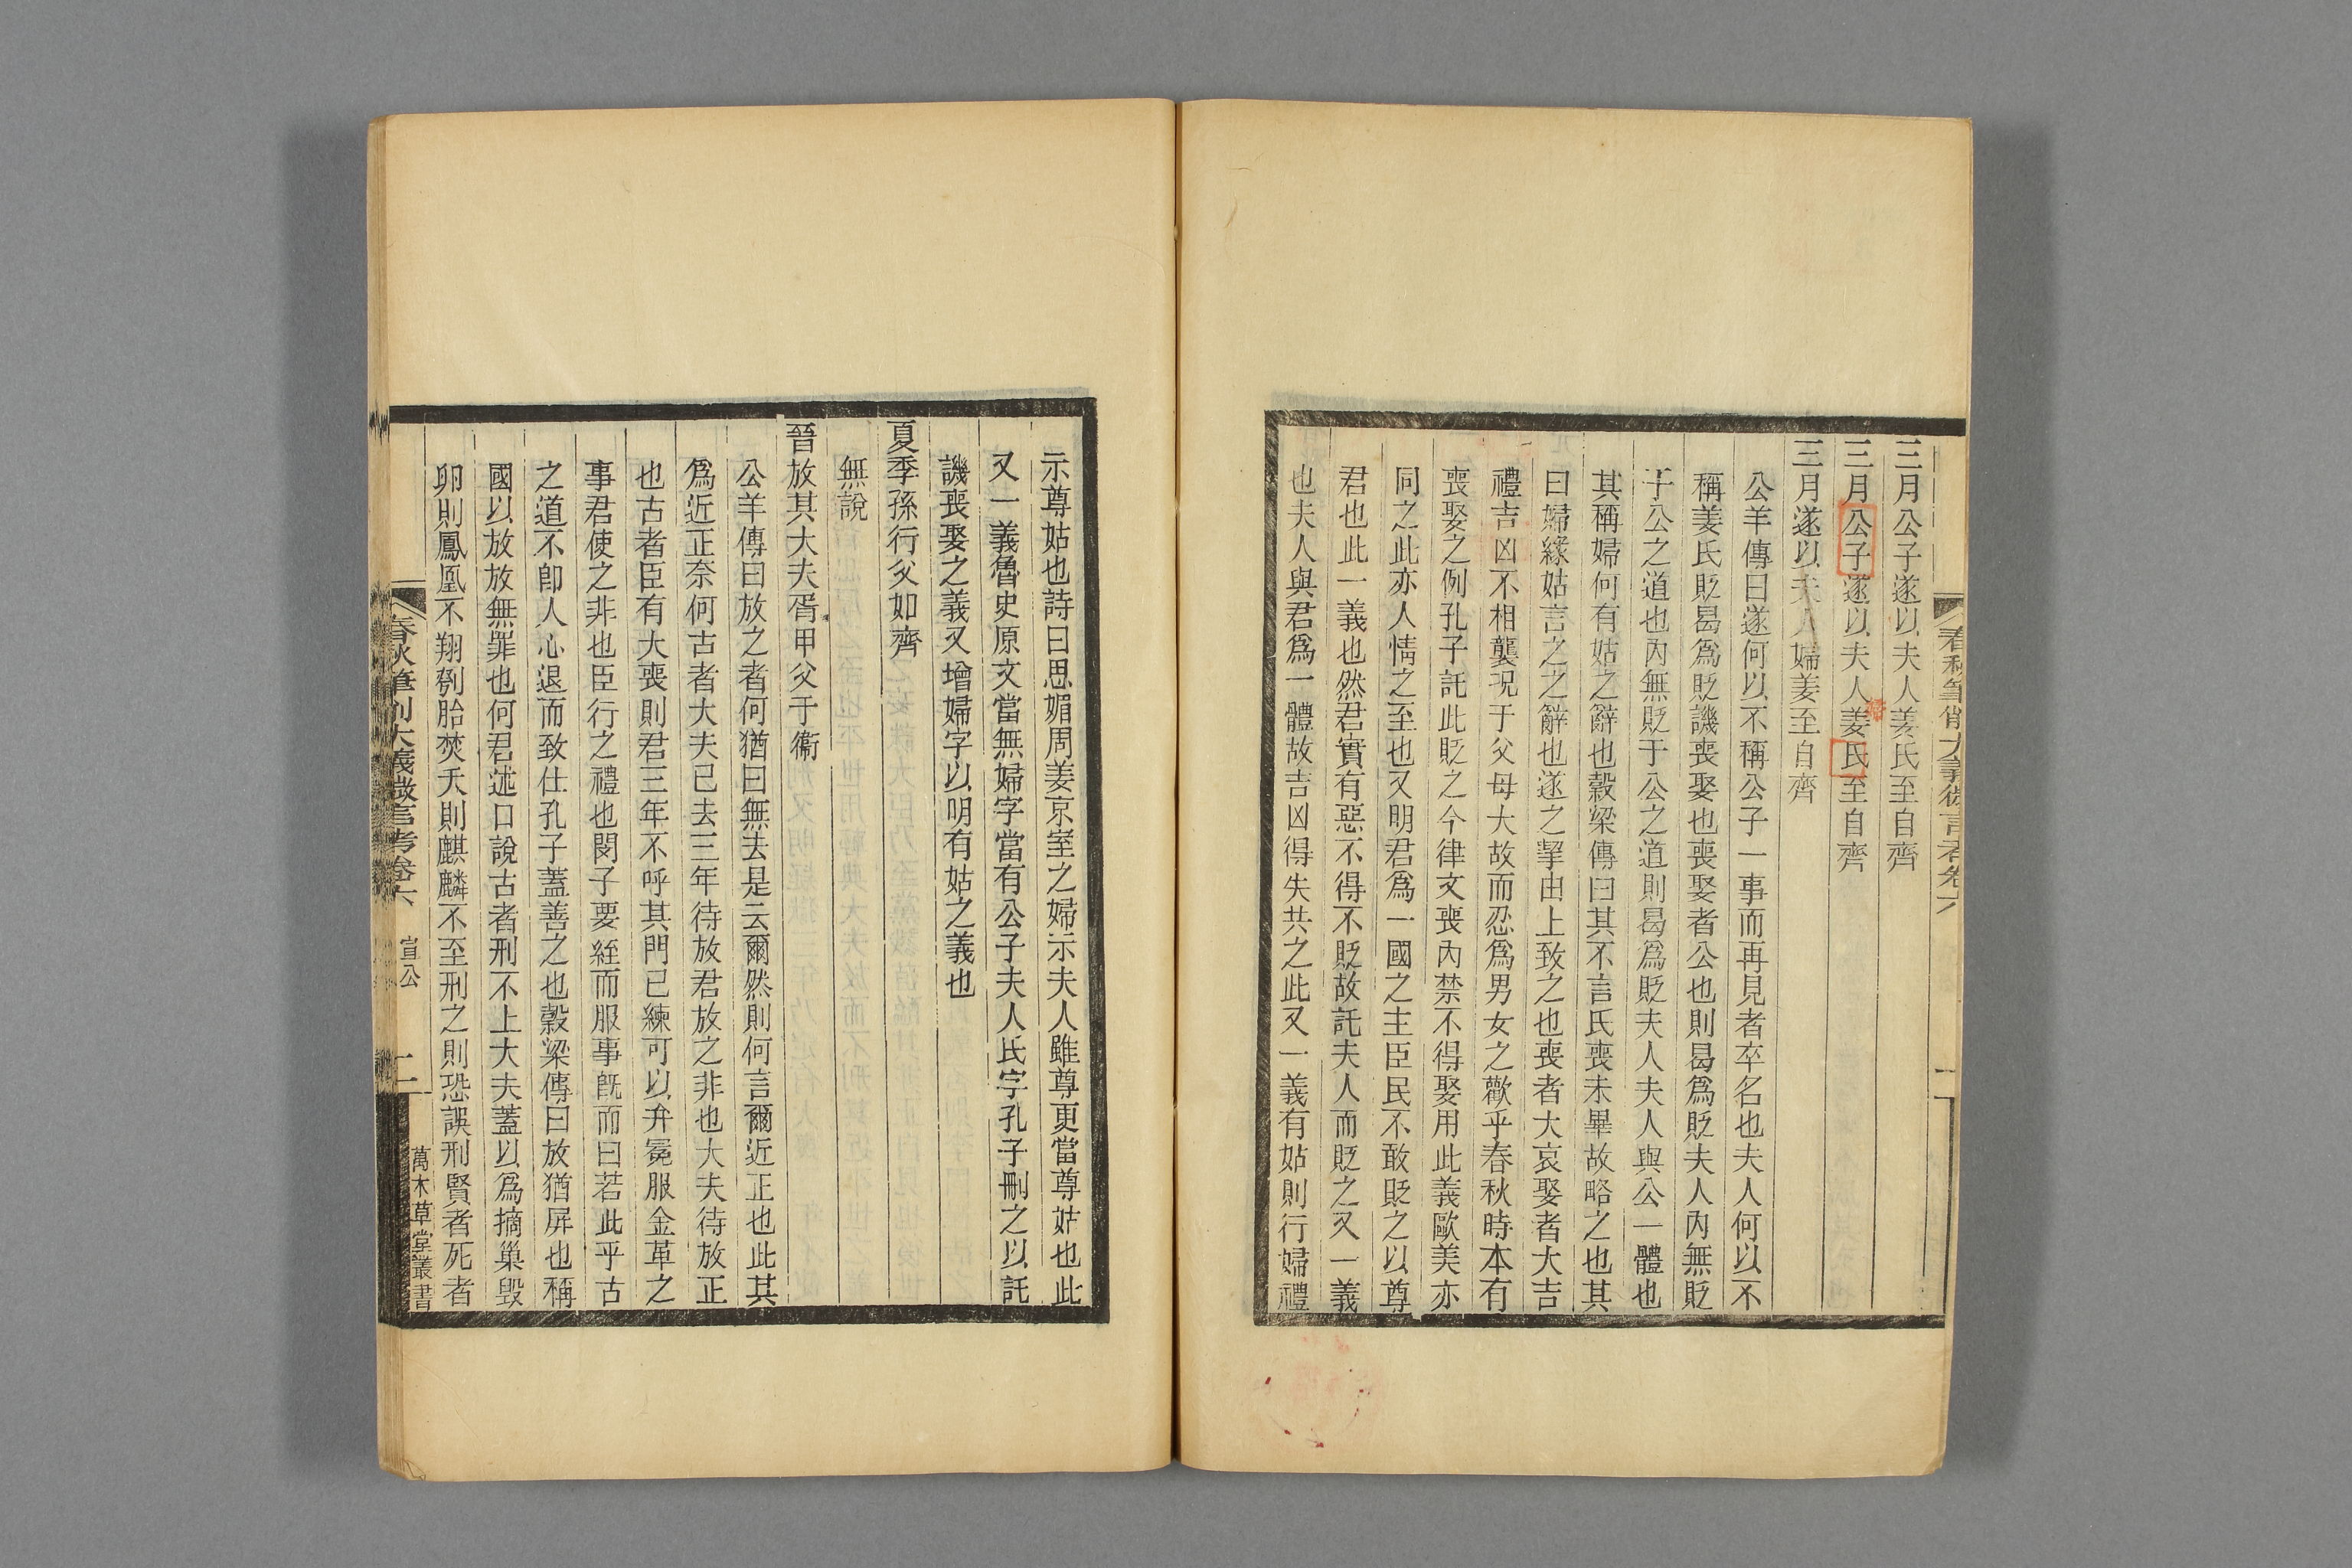 春秋筆削大義微言考卷六
二
三月公子遂以夫人姜氏至自齊
三月公子遂以夫人姜氏至自齊
婦
三月遂以夫人婦姜至自齊
公羊傳曰遂何以不稱公子一事而再見者卒名也夫人何以不
稱姜氏貶曷爲貶譏喪娶也喪娶者公也則曷爲貶夫人內無貶
于公之道也內無貶于公之道則曷爲貶夫人夫人與公一體也
其稱婦何有姑之辭也穀梁傳曰其不言氏喪未畢故略之也其
曰婦緣姑言之之辭也遂之挈由上致之也喪者大哀娶者大吉
禮吉凶不相襲況于父母大故而忍爲男女之歡乎春秋時本有
喪娶之例孔子託此貶之今律文喪內禁不得娶用此義歐美亦
同之此亦人情之至也又明君爲一國之主臣民不敢貶之以尊
君也此一義也然君實有惡不得不貶故託夫人而貶之又一義
也夫人與君爲一體故吉凶得失共之此又一義有姑則行婦禮
示尊姑也詩曰思媚周姜京室之婦示夫人雖尊更當尊姑也此
又一義魯史原文當無婦字當有公子夫人氏字孔子刪之以託
譏喪娶之義又增婦字以明有姑之義也
夏季孫行父如齊
無說
晉放其大夫胥甲父于衞
公羊傳曰放之者何猶曰無去是云爾然則何言爾近正也此其
爲近正奈何古者大夫已去三年待放君放之非也大夫待放正
也古者臣有大喪則君三年不呼其門已練可以弁冕服金革之
事君使之非也臣行之禮也閔子要絰而服事旣而曰若此乎古
之道不卽人心退而致仕孔子蓋善之也穀梁傳曰放猶屏也稱
國以放放無罪也何君述口說古者刑不上大夫蓋以爲摘巢毀
卵則鳳凰不翔刳胎焚夭則麒麟不至刑之則恐誤刑賢者死者
春秋筆削大義微言考卷六
宣公
二
萬木草堂叢書